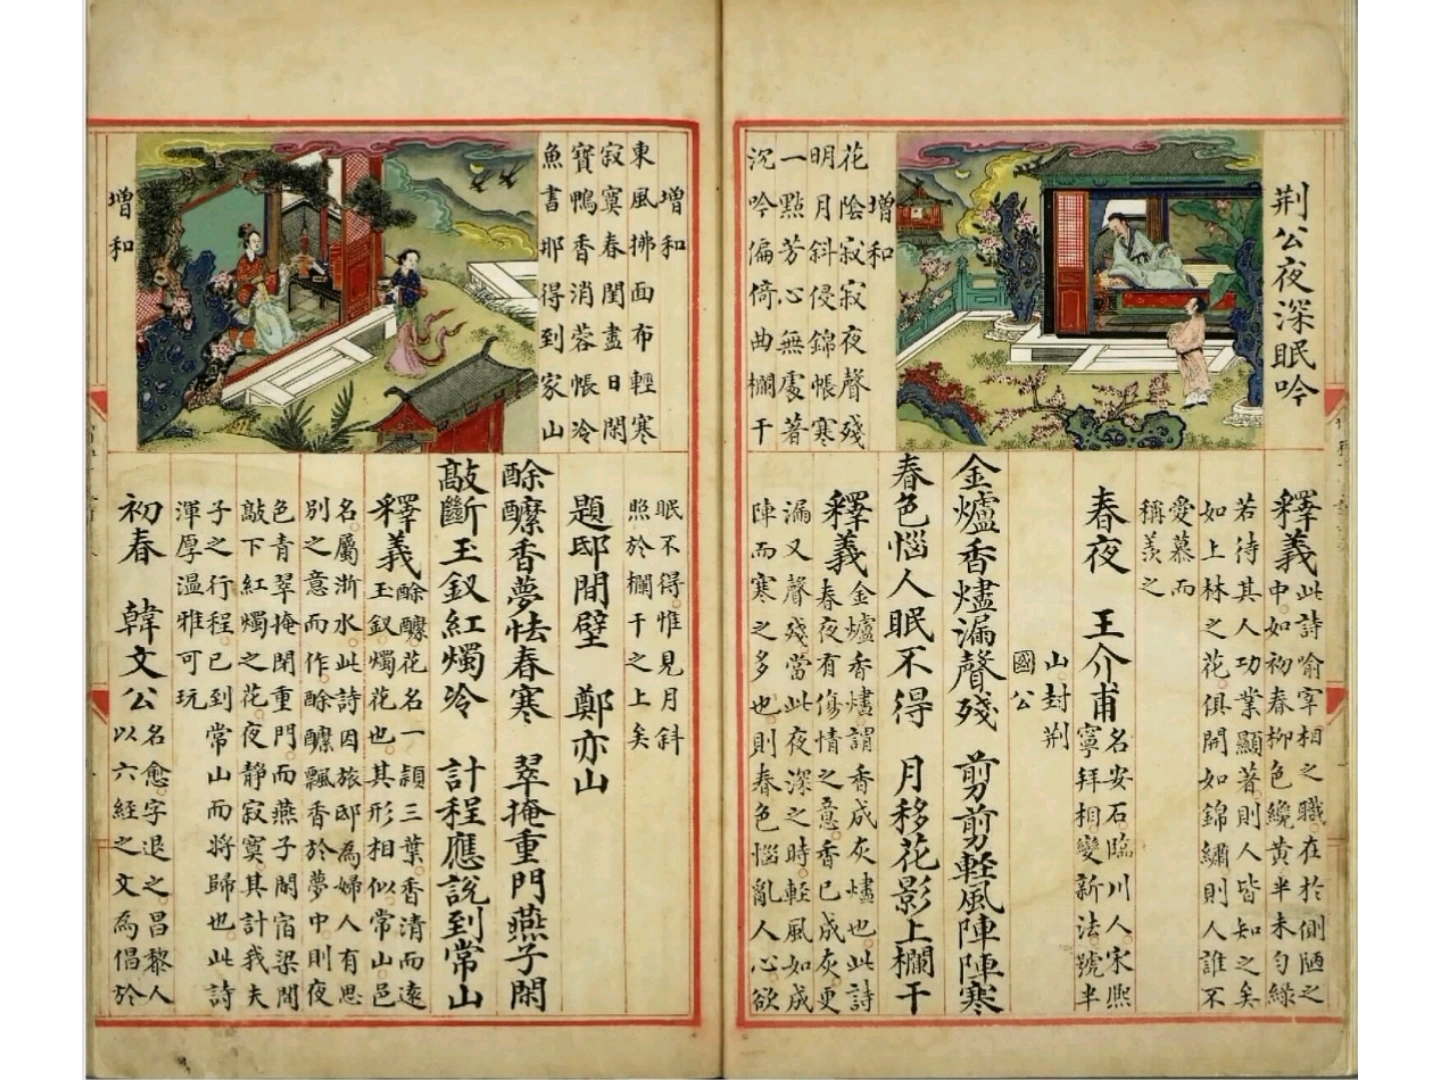 荆公夜深眠吟
增和
花陰寂寂夜聲殘
明月斜侵錦帳寒
一點芳心無處著
沉吟偏倚曲欄干
釋義此詩喻宰相之職在於側陋之
中如初春柳色纔黃半未勻綠
若待其人功業顯著則人皆知之矣
如上林之花俱開如錦繡則人誰不
愛慕而
稱羨之
春夜 王介甫名安石臨川人宋熙
寧拜相變新法號半
山封荆
國公
金爐香燼漏聲殘 剪剪輕風陣陣寒
春色惱人眠不得 月移花影上欄干
釋義金爐香燼謂香成灰燼也此詩
春夜有傷情之意香已成灰更
漏又聲殘當此夜深之時輕風如成
陣而寒之多也則春色惱亂人心欲
增和
東風拂面布輕寒
寂寞春閨盡日閑
寶鴨香消蓉帳冷
魚書耶得到家山
增和
眠不得惟見月斜
照於欄干之上矣
題邸間壁 鄭亦山
酴醾香夢怯春寒 翠掩重門燕子閑
敲斷玉釵紅燭冷 計程應說到常山
釋義酴醾花名一頴三葉香清而遠
玉釵燭花也其形相似常山邑
名屬浙水此詩因旅邸為婦人有思
別之意而作酴醾飄香於夢中則夜
色青翠掩閉重門而燕子閑宿梁間
敲下紅燭之花夜静寂寞其計我夫
子之行程已到常山而將歸也此詩
渾厚温雅可玩
初春 韓文公名愈字退之昌黎人
以六經之文為倡於